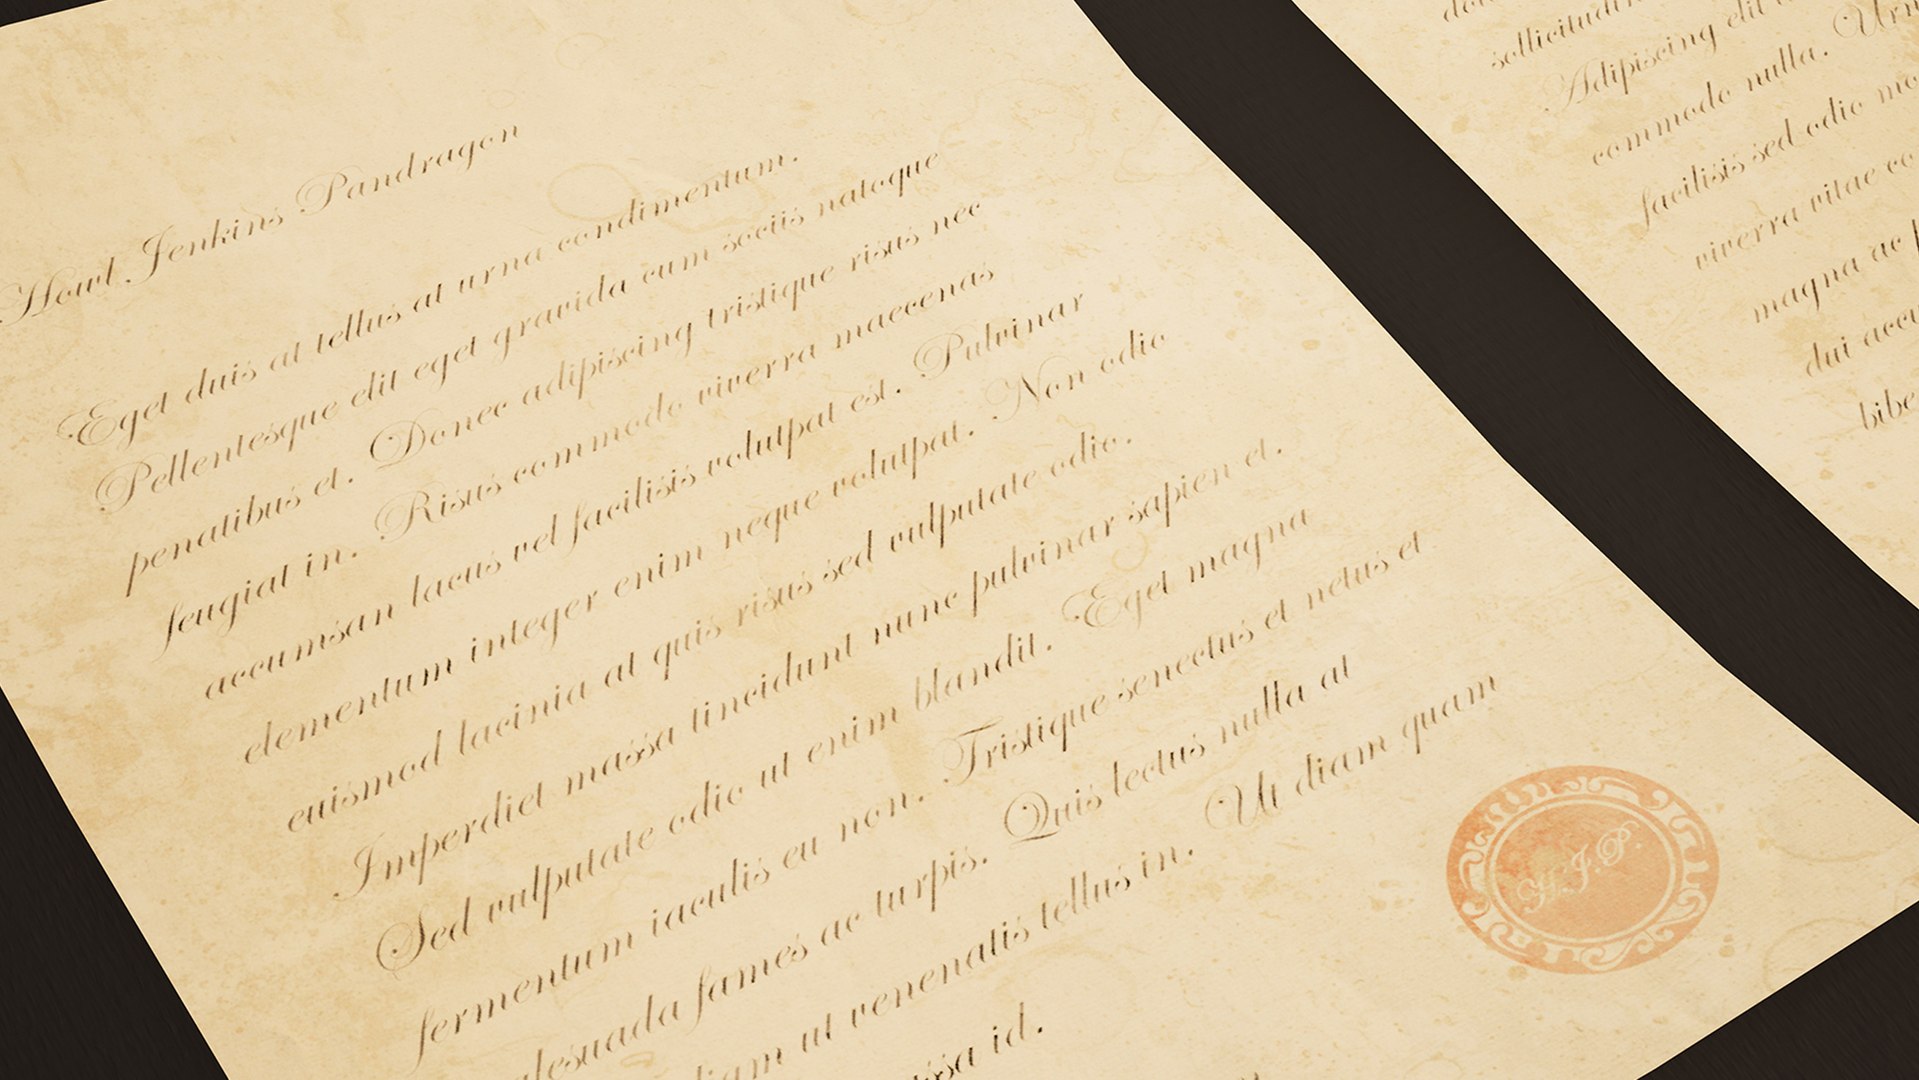 Howl Jenkins Pandragon
Eget duis at tellus at urna condimentum.
Pellentesque elit eget gravida cum sociis natoque
penatibus et. Donec adipiscing tristique risus nec
feugiat in. Risus commodo viverra maecenas
accumsan lacus vel facilisis volutpat est. Pulvinar
elementum integer enim neque volutpat. Non odio
euismod lacinia at quis risus sed vulputate odio.
Imperdiet massa tincidunt nunc pulvinar sapien et.
Sed vulputate odio ut enim blandit. Eget magna
fermentum iaculis eu non. Tristique senectus et netus et
fames ac turpis. Quis lectus nulla at
ut venenatis tellus in. Ut diam quam
id.
H.J.P.
sollicitudin
Adipiscing elit
commodo nulla.
facilisis sed odio
viverra vitae
magna ac
dui